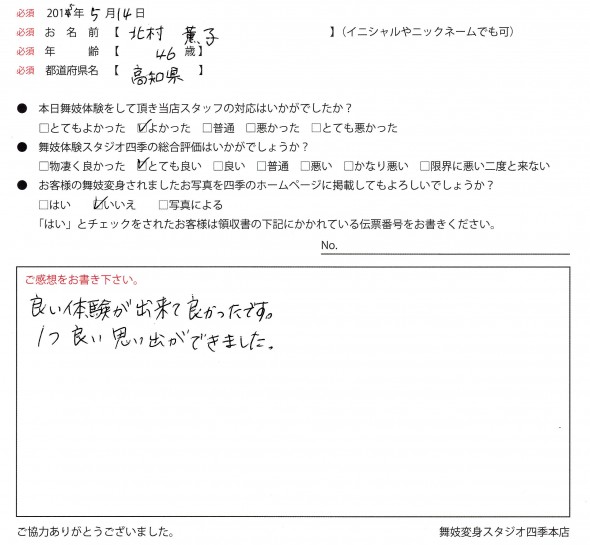 必須 2015年 5月14日
必須 お 名 前 【 北村 薫子 】（イニシャルやニックネームでも可）
必須 年 齢 【 46 歳】
必須 都道府県名 【 高知県 】
● 本日舞妓体験をして頂き当店スタッフの対応はいかがでしたか？
□とてもよかった ☑よかった □普通 □悪かった □とても悪かった
● 舞妓体験スタジオ四季の総合評価はいかがでしょうか？
□物凄く良かった ☑とても良い □良い □普通 □悪い □かなり悪い □限界に悪い二度と来ない
● お客様の舞妓変身されましたお写真を四季のホームページに掲載してもよろしいでしょうか？
□はい ☑いいえ □写真による
「はい」とチェックをされたお客様は領収書の下記にかかれている伝票番号をお書きください。
No.
ご感想をお書き下さい。
良い体験が出来て良かったです。
1つ良い思い出ができました。
ご協力ありがとうございました。
舞妓変身スタジオ四季本店